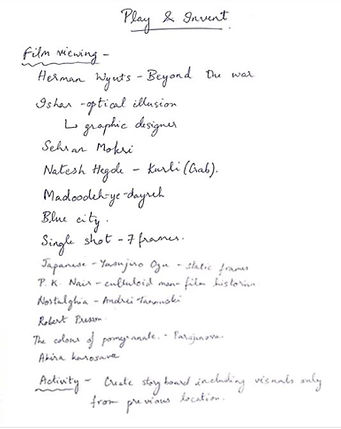 Play & Invent
Film viewing -
Herman Wyuts - Beyond the war
Ishar - optical illusion
↳ graphic designer
Sehran Mokri
Natesh Hegde - Kurli (Crab).
Madoodeh-ye-dayreh
Blue city.
Single shot - 7 frames.
Japanese - Yasujuro Ozu - static frames
P. K. Nair - celluloid man film historian
Nostalghia - Andrei Tarkovski
Robert Bresson.
The colour of pomegranate. - Parajanova
Akira kurosava
Activity - Create storyboard including visuals only
from previous location.